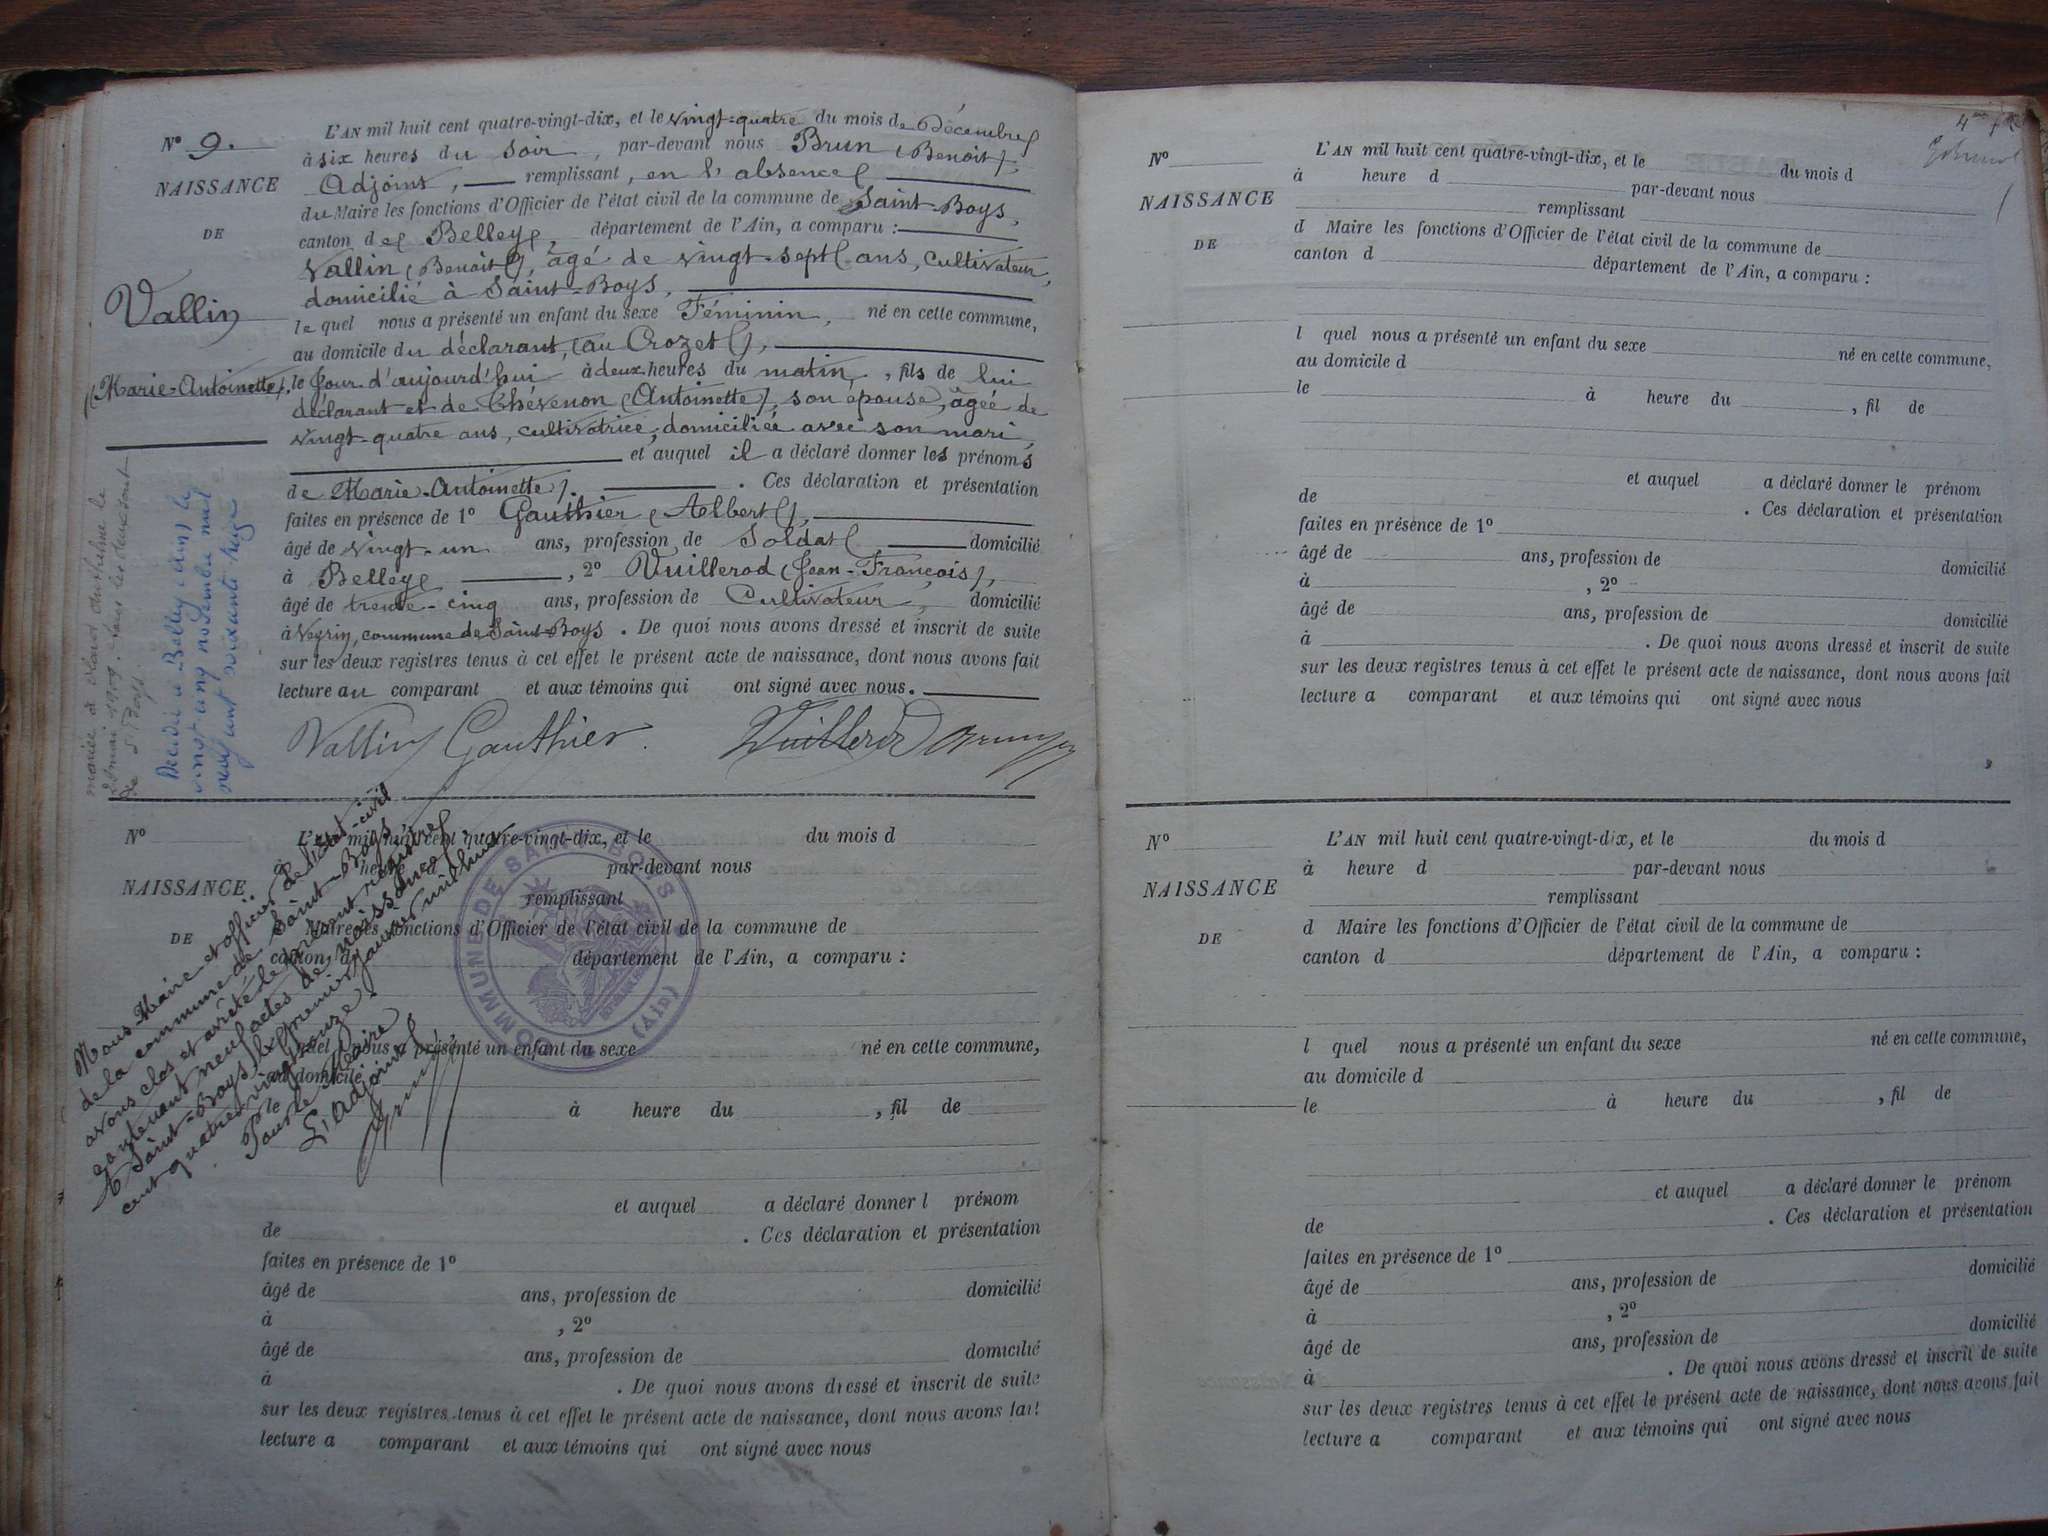 N° 9.
NAISSANCE
DE
Vallin
(Marie-Antoinette).
L'AN mil huit cent quatre-vingt-dix, et le vingt-quatre du mois de Décembre
à six heures du soir, par-devant nous Brun (Benoit),
Adjoint, remplissant, en l'absence
du Maire les fonctions d'Officier de l'état civil de la commune de Saint-Boys,
canton de Belley, département de l'Ain, a comparu :
Vallin (Benoit), âgé de vingt-sept ans, cultivateur,
domicilié à Saint-Boys,
lequel nous a présenté un enfant du sexe Féminin, né en cette commune,
au domicile du déclarant, (au Crozet),
le jour d'aujourd'hui à deux heures du matin, fils de lui
déclarant et de Chévenon (Antoinette), son épouse, âgée de
vingt-quatre ans, cultivatrice, domiciliée avec son mari,
et auquel il a déclaré donner les prénoms
de Marie-Antoinette). Ces déclaration et présentation
faites en présence de 1° Gauthier (Aelbert),
âgé de vingt-un ans, profession de Soldat domicilié
à Belley, 2° Vuillerod (Jean-François),
âgé de trente-cinq ans, profession de Cultivateur, domicilié
à Veyrin, commune de Saint-Boys. De quoi nous avons dressé et inscrit de suite
sur les deux registres tenus à cet effet le présent acte de naissance, dont nous avons fait
lecture au comparant et aux témoins qui ont signé avec nous.
Vallin Gauthier. Vuillerod Brun
mariée à
mai 1909.
de St Boys.
Décédée à Belley (Ain) le
vingt cinq novembre mil
neuf cent soixante treize
Nous Maire et officier de l'état-civil
de la commune de Saint-Boys
avons clos et arrêté le présent registre
contenant neuf actes de naissance
A Saint-Boys, le premier janvier mil huit
cent quatre vingt onze.
P. le Maire
L'Adjoint
Brun
COMMUNE DE SAINT-BOYS
(Ain)
N°
NAISSANCE
DE
L'AN mil huit cent quatre-vingt-dix, et le du mois d
à heure d par-devant nous
remplissant
Maire les fonctions d'Officier de l'état civil de la commune de
canton d département de l'Ain, a comparu :
quel nous a présenté un enfant du sexe né en cette commune,
au domicile
le à heure du , fil de
et auquel a déclaré donner l prénom
de . Ces déclaration et présentation
faites en présence de 1°
âgé de ans, profession de domicilié
à , 2°
âgé de ans, profession de domicilié
à . De quoi nous avons dressé et inscrit de suite
sur les deux registres tenus à cet effet le présent acte de naissance, dont nous avons fait
lecture a comparant et aux témoins qui ont signé avec nous
N°
NAISSANCE
DE
L'AN mil huit cent quatre-vingt-dix, et le du mois d
à heure d par-devant nous
remplissant
d Maire les fonctions d'Officier de l'état civil de la commune de
canton d département de l'Ain, a comparu :
l quel nous a présenté un enfant du sexe né en cette commune,
au domicile d
le à heure du , fil de
et auquel a déclaré donner le prénom
de . Ces déclaration et présentation
faites en présence de 1°
âgé de ans, profession de domicilié
à , 2°
âgé de ans, profession de domicilié
à . De quoi nous avons dressé et inscrit de suite
sur les deux registres tenus à cet effet le présent acte de naissance, dont nous avons fait
lecture a comparant et aux témoins qui ont signé avec nous
N°
NAISSANCE
DE
L'AN mil huit cent quatre-vingt-dix, et le du mois d
à heure d par-devant nous
remplissant
d Maire les fonctions d'Officier de l'état civil de la commune de
canton d département de l'Ain, a comparu :
l quel nous a présenté un enfant du sexe né en cette commune,
au domicile d
le à heure du , fil de
et auquel a déclaré donner le prénom
de . Ces déclaration et présentation
faites en présence de 1°
âgé de ans, profession de domicilié
à , 2°
âgé de ans, profession de domicilié
à . De quoi nous avons dressé et inscrit de suite
sur les deux registres tenus à cet effet le présent acte de naissance, dont nous avons fait
lecture a comparant et aux témoins qui ont signé avec nous